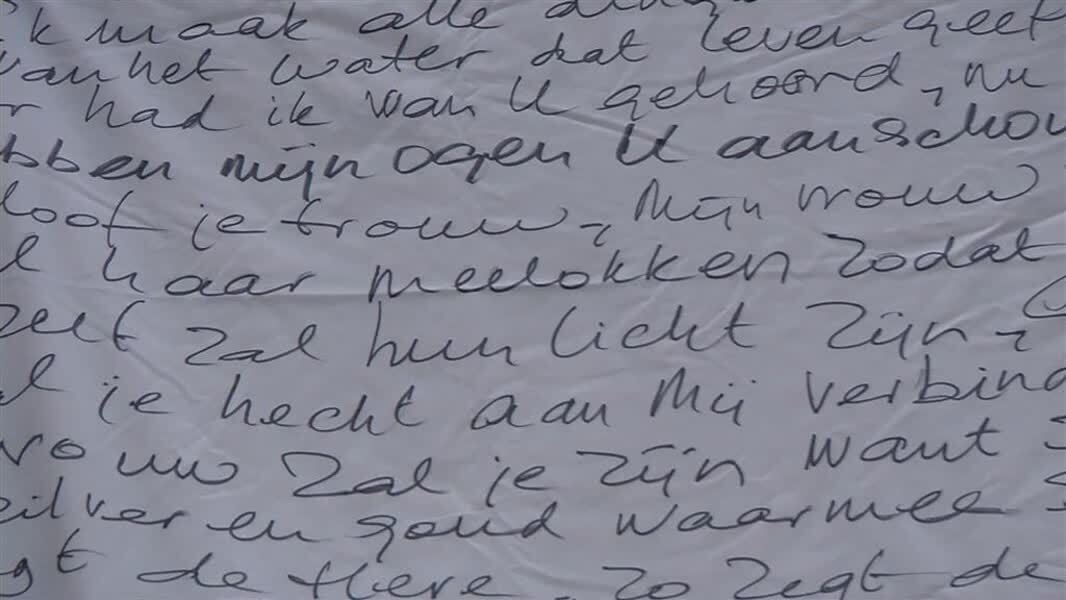 ik maak alle
van het water dat leven geef
r had ik van U gehoord, nu
bben mijn ogen U aanschou
loof je trouw, Mijn vrouw
l haar meelokken zodat
zelf zal hun licht zijn,
l je hecht aan Mij verbind
vrouw zal je zijn want
zilver en goud waarmee
gt de Here. Zo zegt de